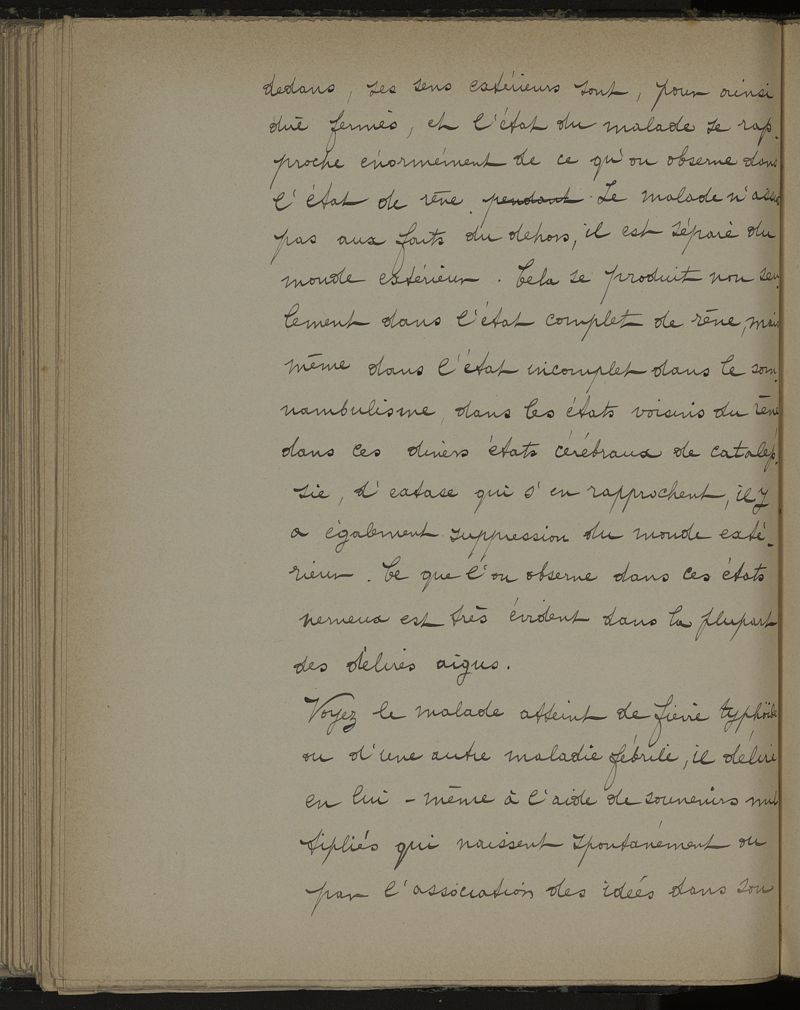 dedans, ses sens extérieurs sont, pour ainsi
dire fermés, et l'état du malade se rap-
proche énormément de ce qu'on observe dans
l'état de rêve. pendant Le malade n'assis
pas aux faits du dehors, il est séparé du
monde extérieur. Cela se produit non seu-
lement dans l'état complet de rêve, mais
même dans l'état incomplet dans le som-
nambulisme, dans les états voisins du rêve
dans ces divers états cérébraux de catalep-
sie, d'extase qui s'en rapprochent, il y
a également suppression du monde exté-
rieur. Ce que l'on observe dans ces états
nerveux est très évident dans la plupart
des délires aigus.
Voyez le malade atteint de fièvre typhoïde
ou d'une autre maladie fébrile, il délire
en lui-même à l'aide de souvenirs mul
tipliés qui naissent spontanément ou
par l'association des idées dans son